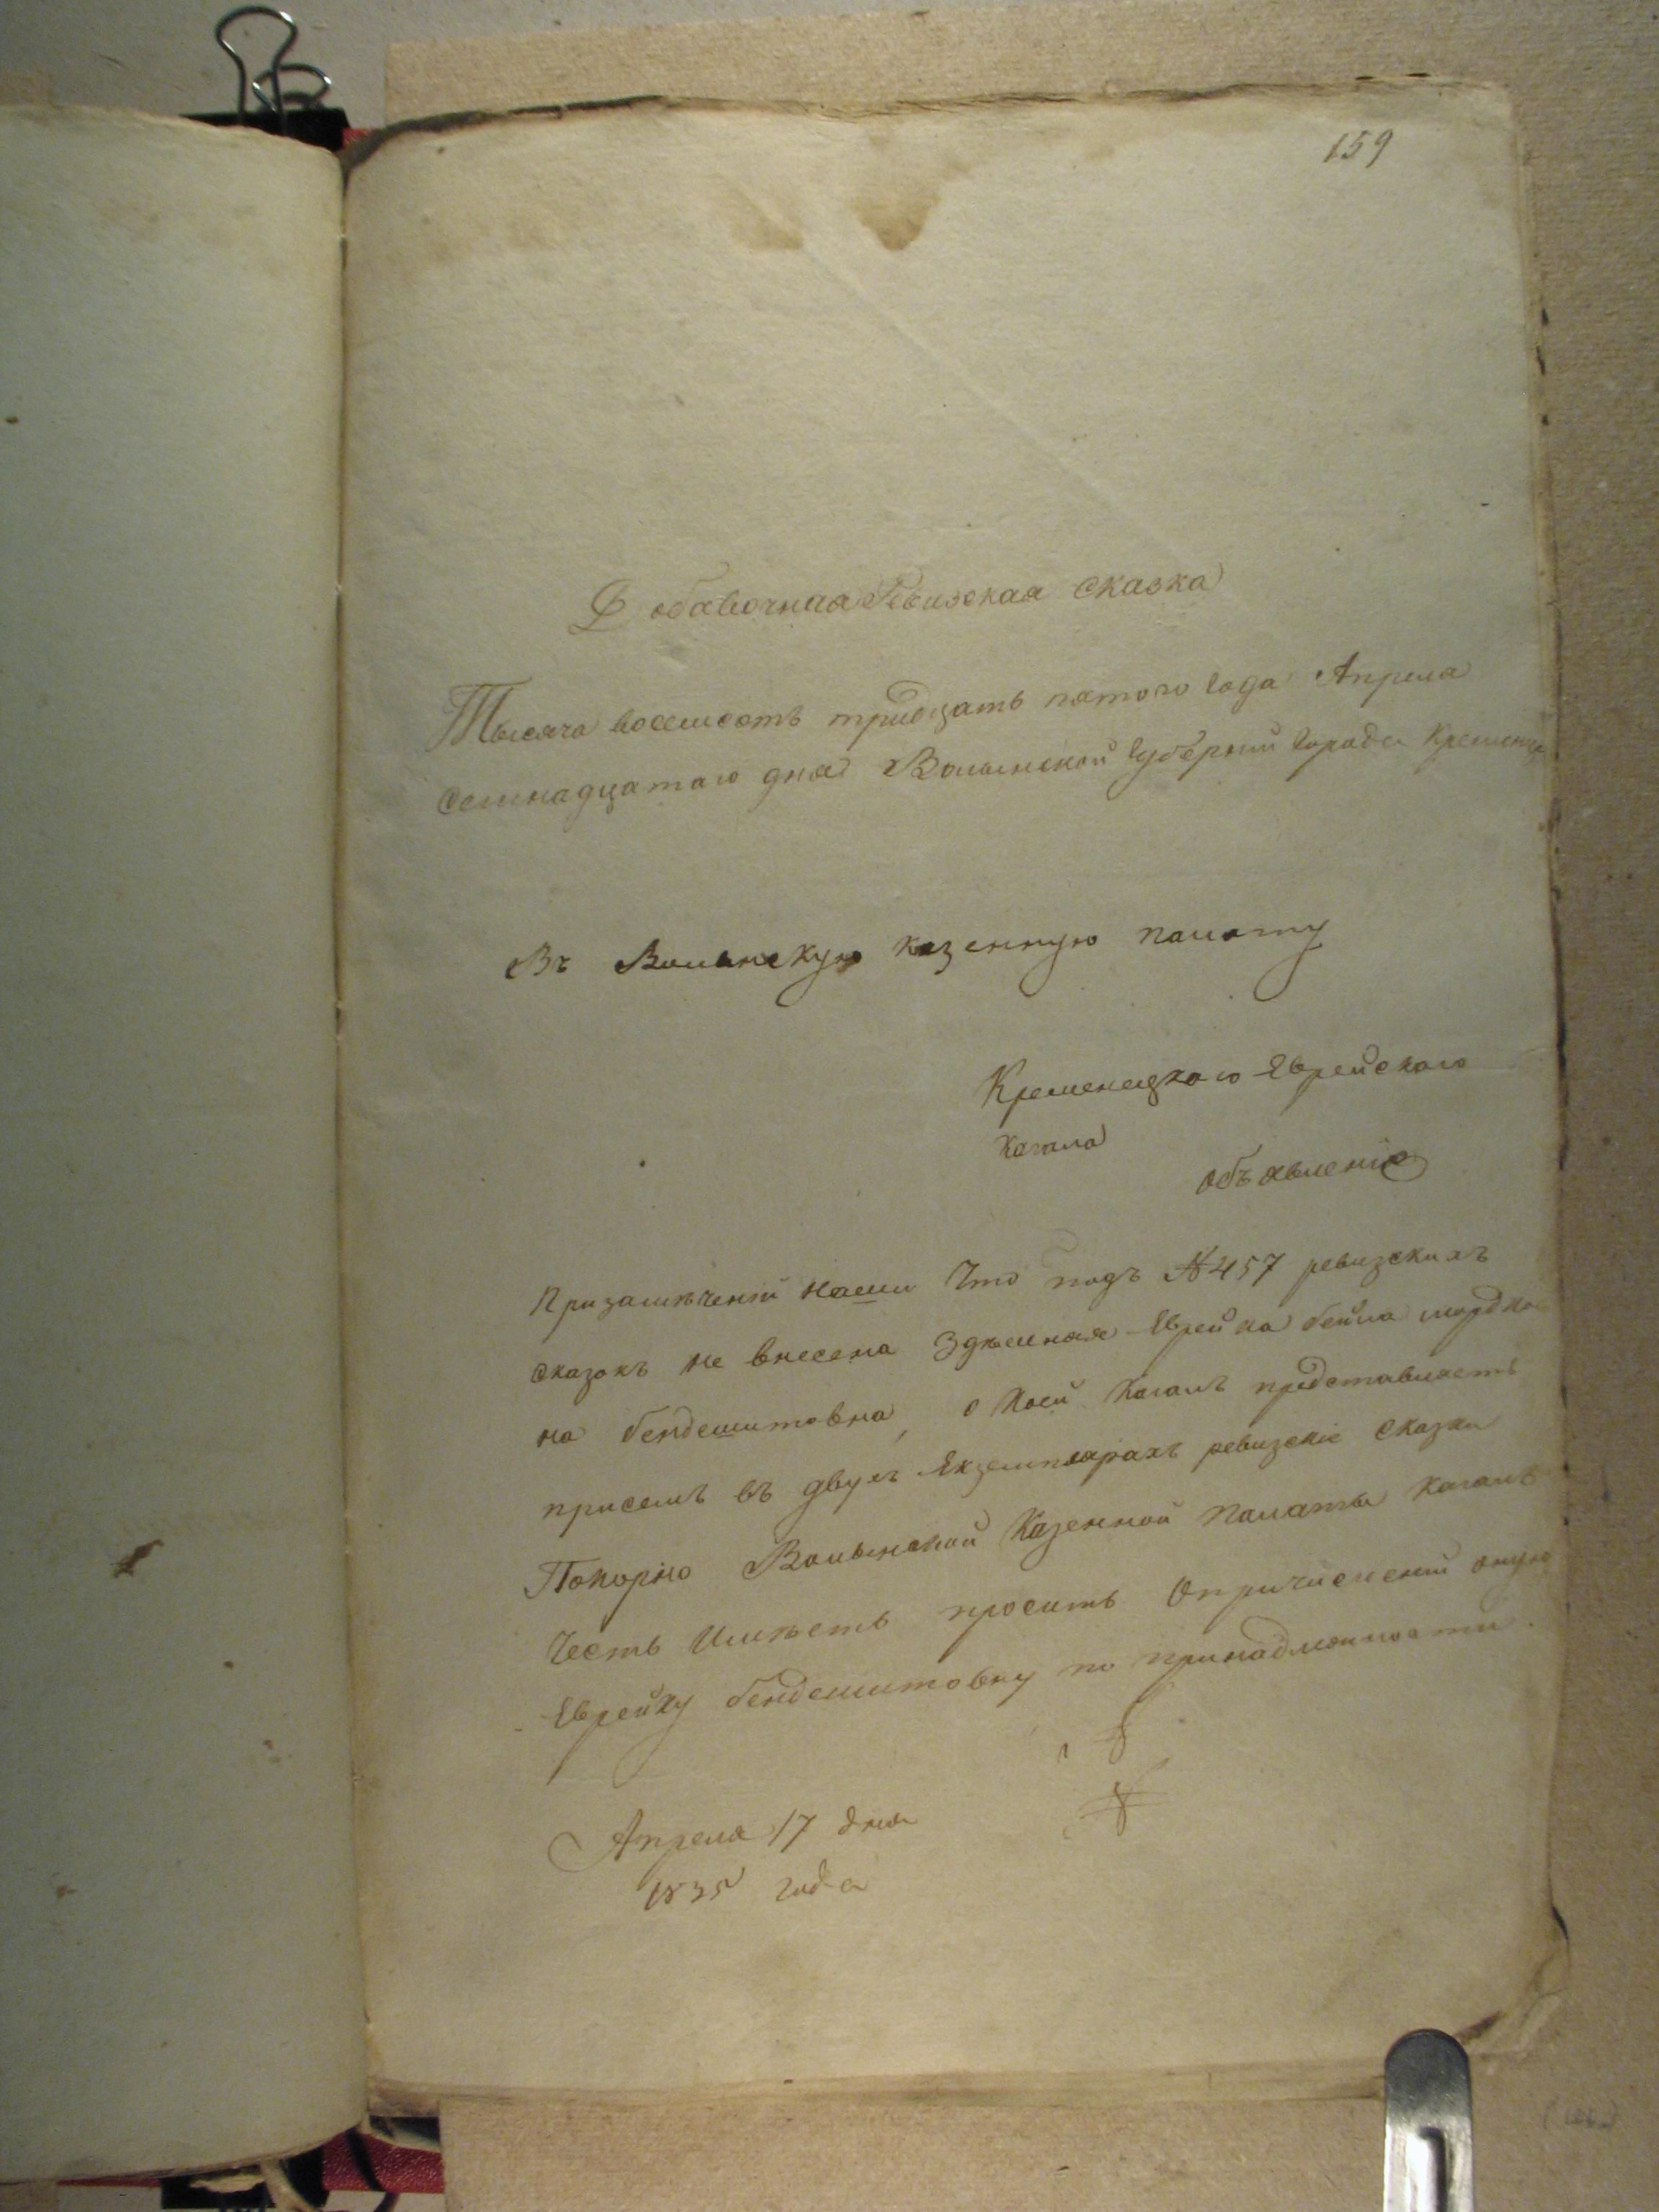 159
Добавочная Ревизская сказка
Тысяча восемсотъ тридцать пятого года Апреля
семнадцатаго дня Волынской Губерніи Города Кременца
Въ Волынскую казенную палату
Кременецкого Еврейского
Кагала
объявленіе
При замѣченіи нами что подъ №457 ревизскихъ
сказокъ не внесена здѣшняя Еврейка бейла мордко
на бендешитовна, о коей Кагалъ представляетъ
присемъ въ двухъ Екземплярахъ ревизскіе сказки
Покорно Волынской Казенной Палаты Кагалъ
Честь имѣетъ просить опричисленіи оную
Еврейку бендешитовну по принадлежности.
Апреля 17 дня
1835 года